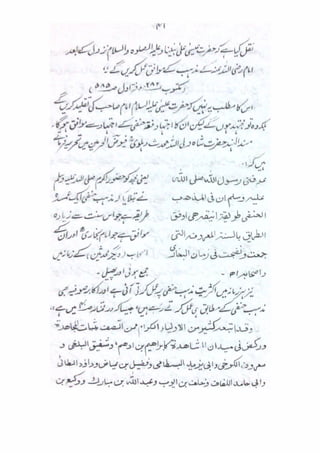 ۴۱
نقل کیا ہے کہ حضرت عیسیٰ علی نبینا وعلیہ الصلوٰۃ والسلام نزول کے بعد
امام رضی اللہ عنہ کے مذہب کے موافق عمل کریں گے۔
(مکتوب ۲۸۲ دفتر اول ص ۵۸۵)
اس کا مطلب یہ نہیں کہ حضرت عیسیٰ علیہ السلام امام صاحب کی تقلید کریں گے
بلکہ وہ خود مجتہد ہوں گے لیکن ان کا اجتہاد فقہ حنفی کے اجتہاد سے موافق ہوگا۔
مسند الہند حضرت شاہ ولی اللہ محدث دہلوی فیوض الحرمین میں تحریر فرماتے
ہیں کہ:
عرفنی رسول اللہ صلی اللہ
علیہ وسلم ان فی المذھب
الحنفی طریقۃ انیقۃ ھی اوفق
الطریق بالسنۃ المعروفۃ التی
جمعت ونقحت فی زمان البخاری
واصحابہ اھ
یعنی مجھ کو حضور اکرم صلی اللہ علیہ وسلم
نے بتلایا کہ مذہب حنفی میں ایک عمدہ
طریقہ ہے جو اس سنت سے زیادہ
موافق ہے جو امام بخاری اور ان کے
اصحاب (دیگر محدثین) کے زمانہ میں
جمع ہوئی اور
نیز ہر زمانہ میں اکثریت مذہب حنفی پر عمل کرتی آئی ہے اور اکابر صوفیہ بھی
مذہب حنفی کے مطابق ہی عمل کرتے رہے ہیں، جیسا کہ در مختار میں ہے،
وقد اتبعہ کثیر من الاولیاء الکرام ممن اتصف بثبات المجاھدۃ
ورکض فی میدان المشاھدۃ کابراھیم بن ادھم وشقیق البلخی و
معروف الکرخی وابی یزید البسطامی وفضیل بن عیاض وداؤد الطائی
وابی حامد اللفاف وخلف بن ایوب وعبد اللہ بن مبارک ووکیع بن